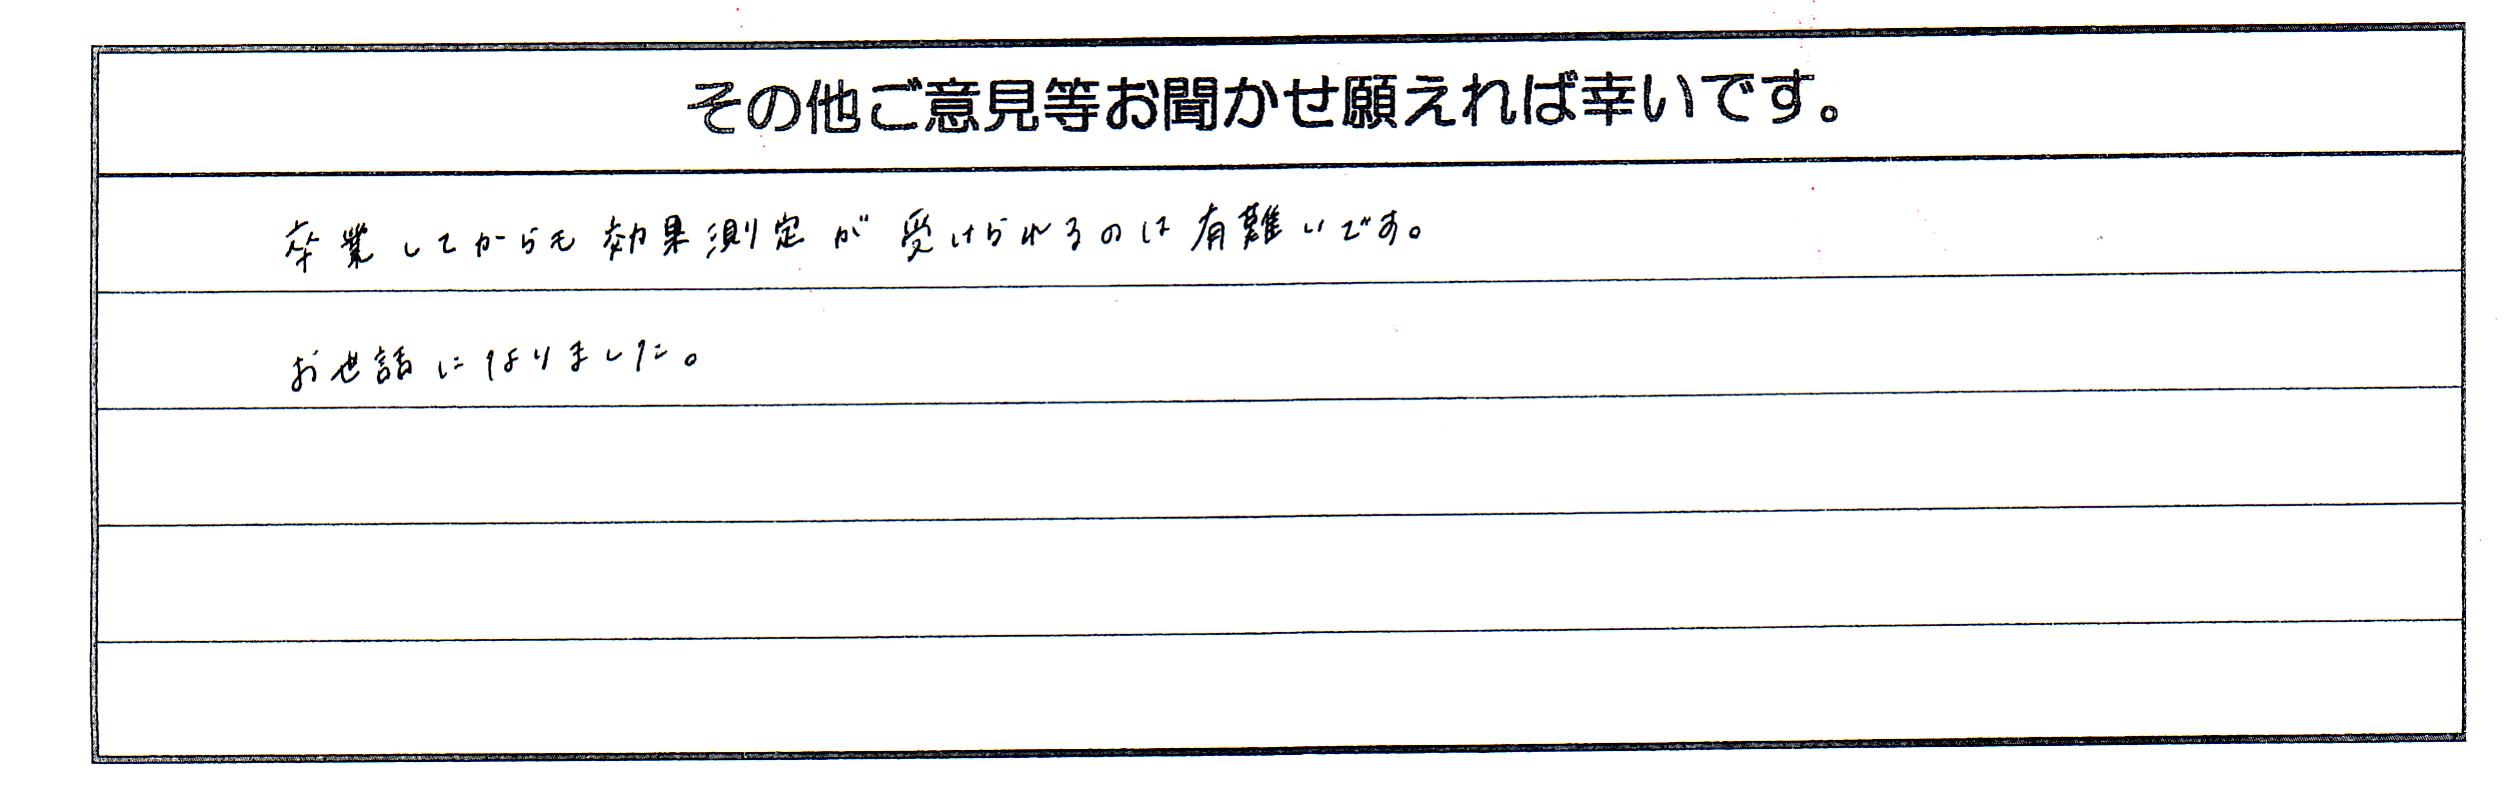 その他ご意見等お聞かせ願えれば幸いです。
卒業してからも効果測定が受けられるのは有難いです。
お世話になりました。